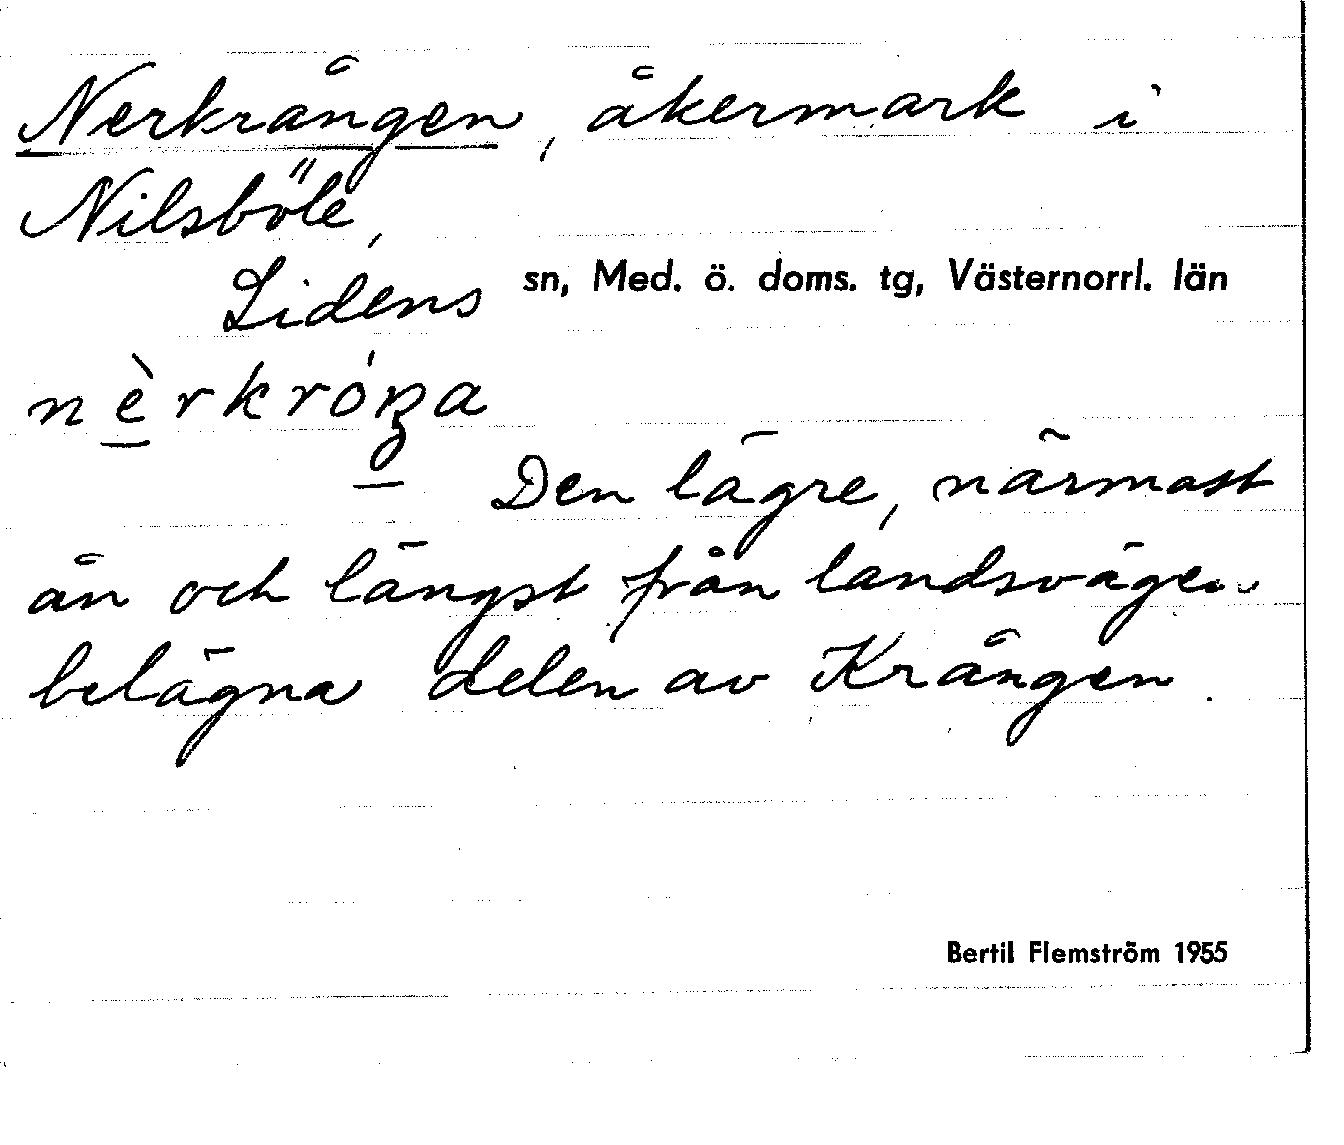 Nerkrången, åkermark i
Nilsböle,
Lidens sn, Med. ö. doms. tg, Västernorrl. län
nèrkróŋa
Den lägre, närmast
ån och längst från landsvägen
belägna delen av Krången.
Bertil Flemström 1955